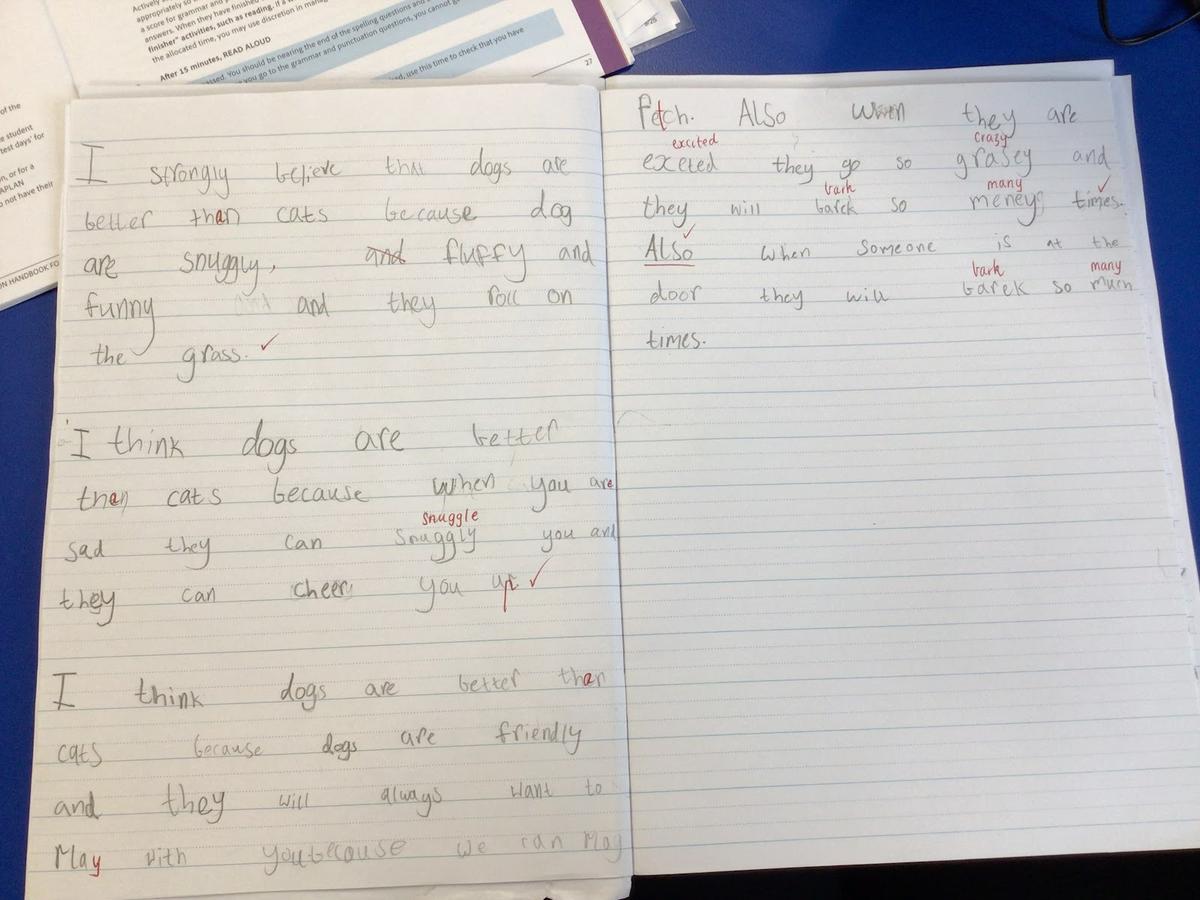 Actively
appropriately so
a score for grammar and
answers. When they have finished
finisher" activities, such as reading. If a
the allocated time, you may use discretion in
After 15 minutes, READ ALOUD
You should be nearing the end of the spelling questions and
you go to the grammar and punctuation questions, you cannot
use this time to check that you have
27
of the
student
test days' for
n, or for a
APLAN
o not have their
ON HANDBOOK FO
I strongly believe that dogs are
better than cats because dog
are snuggly, and fluffy and
funny and and they roll on
the grass. ✓
I think dogs are better
than cats because when you are
snuggle
sad they can snuggly you and
they can cheer you up ✓
I think dogs are better than
cats because dogs are friendly
and they will always want to
May with youbecause we can May
Fetch. Also when they are
excited crazy
exceted they go so grasey and
bark many ✓
they will barek so meney times.
✓
Also when someone is at the
bark many
door they will barek so much
times.